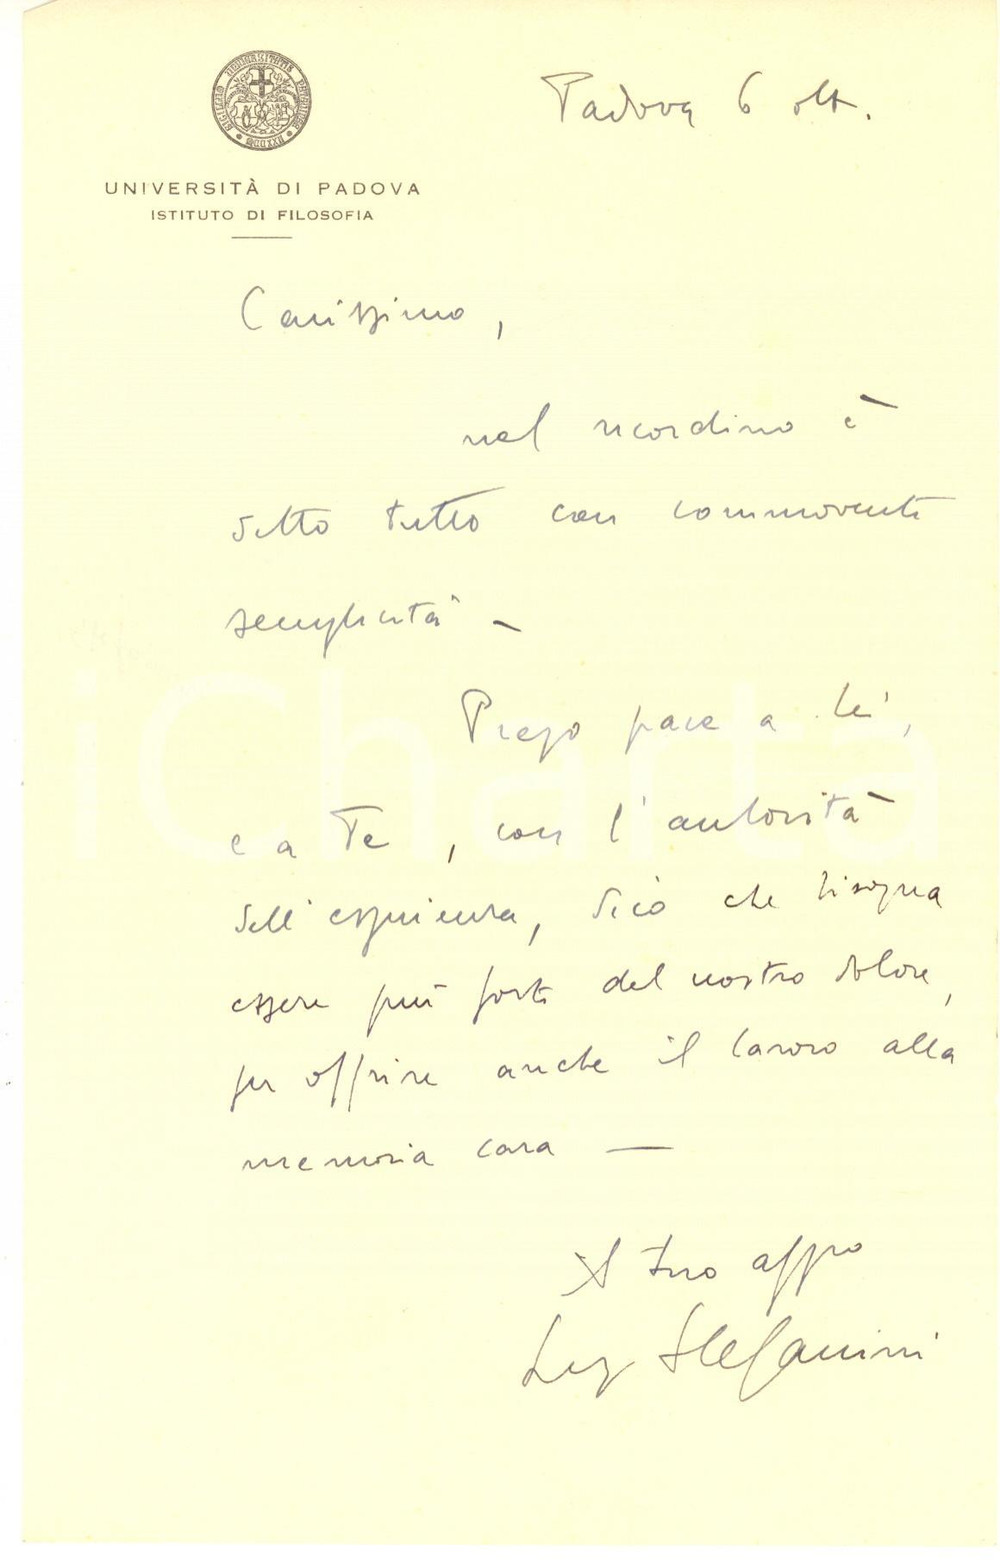 UNIVERSITÀ DI PADOVA
ISTITUTO DI FILOSOFIA
Padova 6 ott.
Carissimo,
nel ricordino è
detto tutto con commovente
semplicità –
Prego pace a lei,
e a Te, con l'autorità
dell'esperienza, dico che bisogna
essere più forti del nostro dolore,
per offrire anche il lavoro alla
memoria cara —
Il tuo affmo
Luigi Stefanini
iCharta